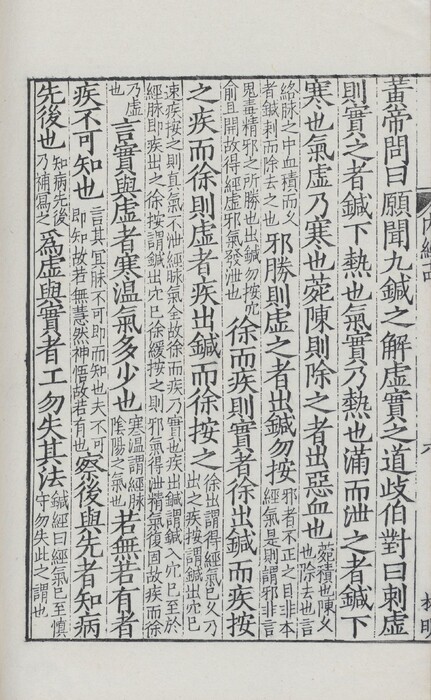 黃帝問曰願聞九鍼之解虛實之道歧伯對曰刺虛
則實之者鍼下熱也氣實乃熱也滿而泄之者鍼下
寒也氣虛乃寒也菀陳則除之者出惡血也菀積也陳久也除去也言
絡脉之中血積而久者鍼刺而除去之也邪勝則虛之者出鍼勿按邪者不正之目非本經氣是則謂邪非言
鬼毒精邪之所勝也出鍼勿按穴俞且開故得經虛邪氣發泄也徐而疾則實者徐出鍼而疾按
之疾而徐則虛者疾出鍼而徐按之徐出謂得經氣已久乃出之疾按謂鍼出穴已
速疾按之則真氣不泄經脉氣全故徐而疾乃實也疾出鍼謂鍼入穴已至於經脉即疾出之徐按謂鍼出穴已徐緩按之則邪氣得泄精氣復固故疾而徐
乃虛也言實與虛者寒温氣多少也寒温謂經脉陰陽之氣也若無若有者
疾不可知也言其冥昧不可即而知也夫不可即知故若無慧然神悟故若有也察後與先者知病
先後也知病先後乃補寫之為虛與實者工勿失其法鍼經曰經氣已至慎守勿失此之謂也